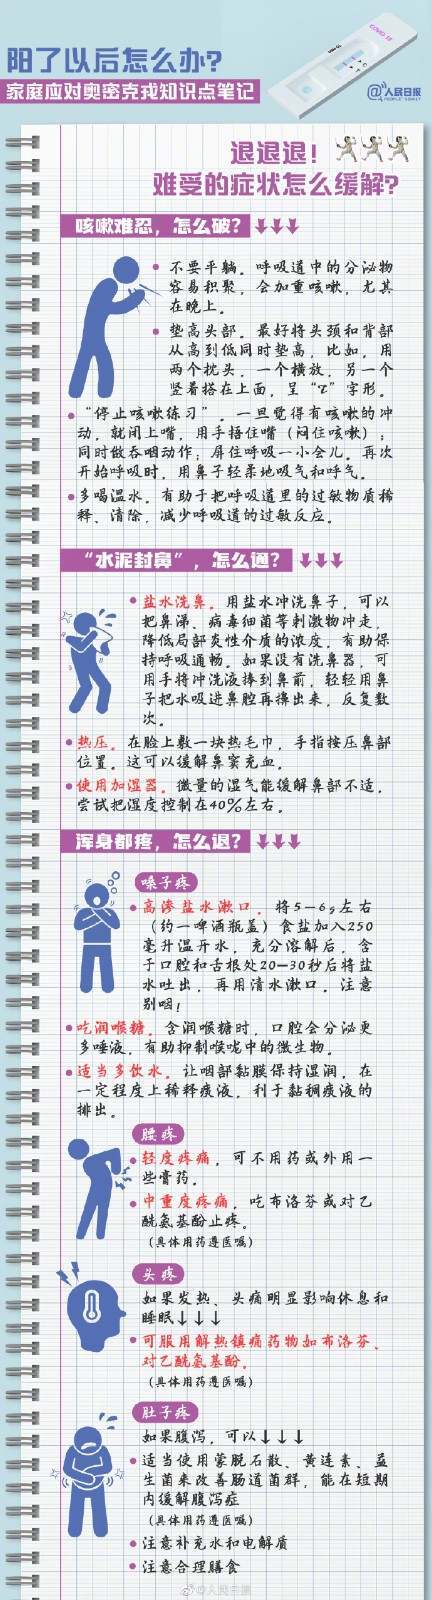 阳了以后怎么办?
家庭应对奥密克戎知识点笔记
COVID 19
@人民日报
PEOPLE'S DAILY
退退退!
难受的症状怎么缓解?
咳嗽难忍,怎么破?↓↓↓
• 不要平躺。呼吸道中的分泌物
容易积聚,会加重咳嗽,尤其
在晚上。
• 垫高头部。最好将头颈和背部
从高到低同时垫高,比如,用
两个枕头,一个横放,另一个
竖着搭在上面,呈“T”字形。
• “停止咳嗽练习”。一旦觉得有咳嗽的冲
动,就闭上嘴,用手捂住嘴(闷住咳嗽);
同时做吞咽动作;屏住呼吸一小会儿。再次
开始呼吸时,用鼻子轻柔地吸气和呼气。
• 多喝温水。有助于把呼吸道里的过敏物质稀
释、清除,减少呼吸道的过敏反应。
“水泥封鼻”,怎么通?↓↓↓
• 盐水洗鼻。用盐水冲洗鼻子,可以
把鼻涕、病毒细菌等刺激物冲走,
降低局部炎性介质的浓度,有助保
持呼吸通畅。如果没有洗鼻器,可
用手将冲洗液捧到鼻前,轻轻用鼻
子把水吸进鼻腔再擤出来,反复数
次。
• 热压。在脸上敷一块热毛巾,手指按压鼻部
位置。这可以缓解鼻窦充血。
• 使用加湿器。微量的湿气能缓解鼻部不适,
尝试把湿度控制在40%左右。
浑身都疼,怎么退?↓↓↓
嗓子疼
• 高渗盐水漱口。将5—6g左右
(约一啤酒瓶盖)食盐加入250
毫升温开水,充分溶解后,含
于口腔和舌根处20—30秒后将盐
水吐出,再用清水漱口。注意
别咽!
• 吃润喉糖。含润喉糖时,口腔会分泌更
多唾液,有助抑制喉咙中的微生物。
• 适当多饮水。让咽部黏膜保持湿润,在
一定程度上稀释痰液,利于黏稠痰液的
排出。
腰疼
• 轻度疼痛,可不用药或外用一
些膏药。
• 中重度疼痛。吃布洛芬或对乙
酰氨基酚止疼。
(具体用药遵医嘱)
头疼
如果发热、头痛明显影响休息和
睡眠↓↓↓
• 可服用解热镇痛药物如布洛芬、
对乙酰氨基酚。
(具体用药遵医嘱)
肚子疼
如果腹泻,可以↓↓↓
• 适当使用蒙脱石散、黄连素、益
生菌来改善肠道菌群,能在短期
内缓解腹泻症
(具体用药遵医嘱)
• 注意补充水和电解质
• 注意合理膳食
@人民日报